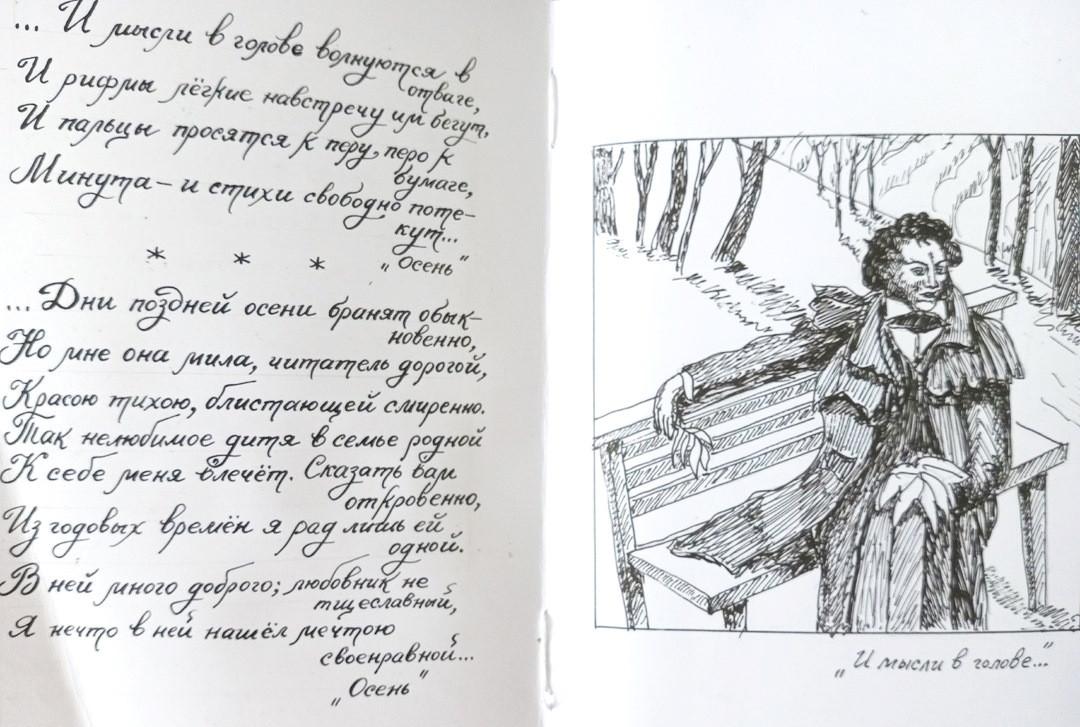 ... И мысли в голове волнуются в
отваге,
И рифмы лёгкие навстречу им бегут,
И пальцы просятся к перу, перо к
бумаге,
Минута – и стихи свободно поте-
кут...
* * *
„Осень"
... Дни поздней осени бранят обык-
новенно,
Но мне она мила, читатель дорогой,
Красою тихою, блистающей смиренно.
Так нелюбимое дитя в семье родной
К себе меня влечёт. Сказать вам
откровенно,
Из годовых времён я рад лишь ей
одной.
В ней много доброго; любовник не
тщеславный,
Я нечто в ней нашёл мечтою
своенравной...
„Осень"
„И мысли в голове..."